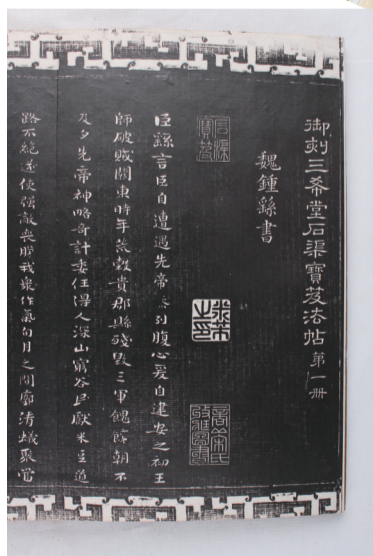 御刻三希堂石渠寶笈法帖第一冊
魏鍾繇書
臣繇言臣自遭遇先帝忝列腹心爰自建安之初王
師破賊關東時年荒穀貴郡縣殘毀三軍餽饟朝不
及夕先帝神略奇計委任得人深山窮谷民獻米豆道
路不絕遂使強敵喪膽我眾作氣旬月之間廓清蟻聚當